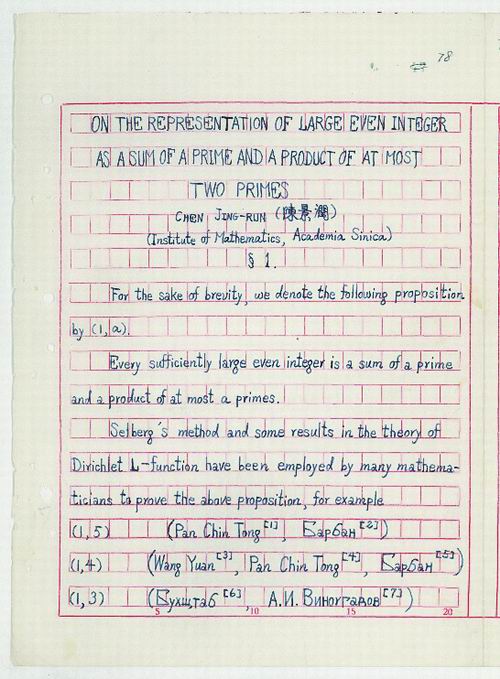 78
ON THE REPRESENTATION OF LARGE EVEN INTEGER
AS A SUM OF A PRIME AND A PRODUCT OF AT MOST
TWO PRIMES
CHEN JING-RUN (陳景潤)
(Institute of Mathematics, Academia Sinica)
§ 1.
For the sake of brevity, we denote the following proposition
by (1, a).
Every sufficiently large even integer is a sum of a prime
and a product of at most a primes.
Selberg's method and some results in the theory of
Divichlet L-function have been employed by many mathema-
ticians to prove the above proposition, for example
(1,5) (Pan Chin Tong[1], Барбан[2])
(1,4) (Wang Yuan[3], Pan Chin Tong[4], Барбан[5])
(1,3) (Бухштаб[6], А.И. Виноградов[7])
5 10 15 20